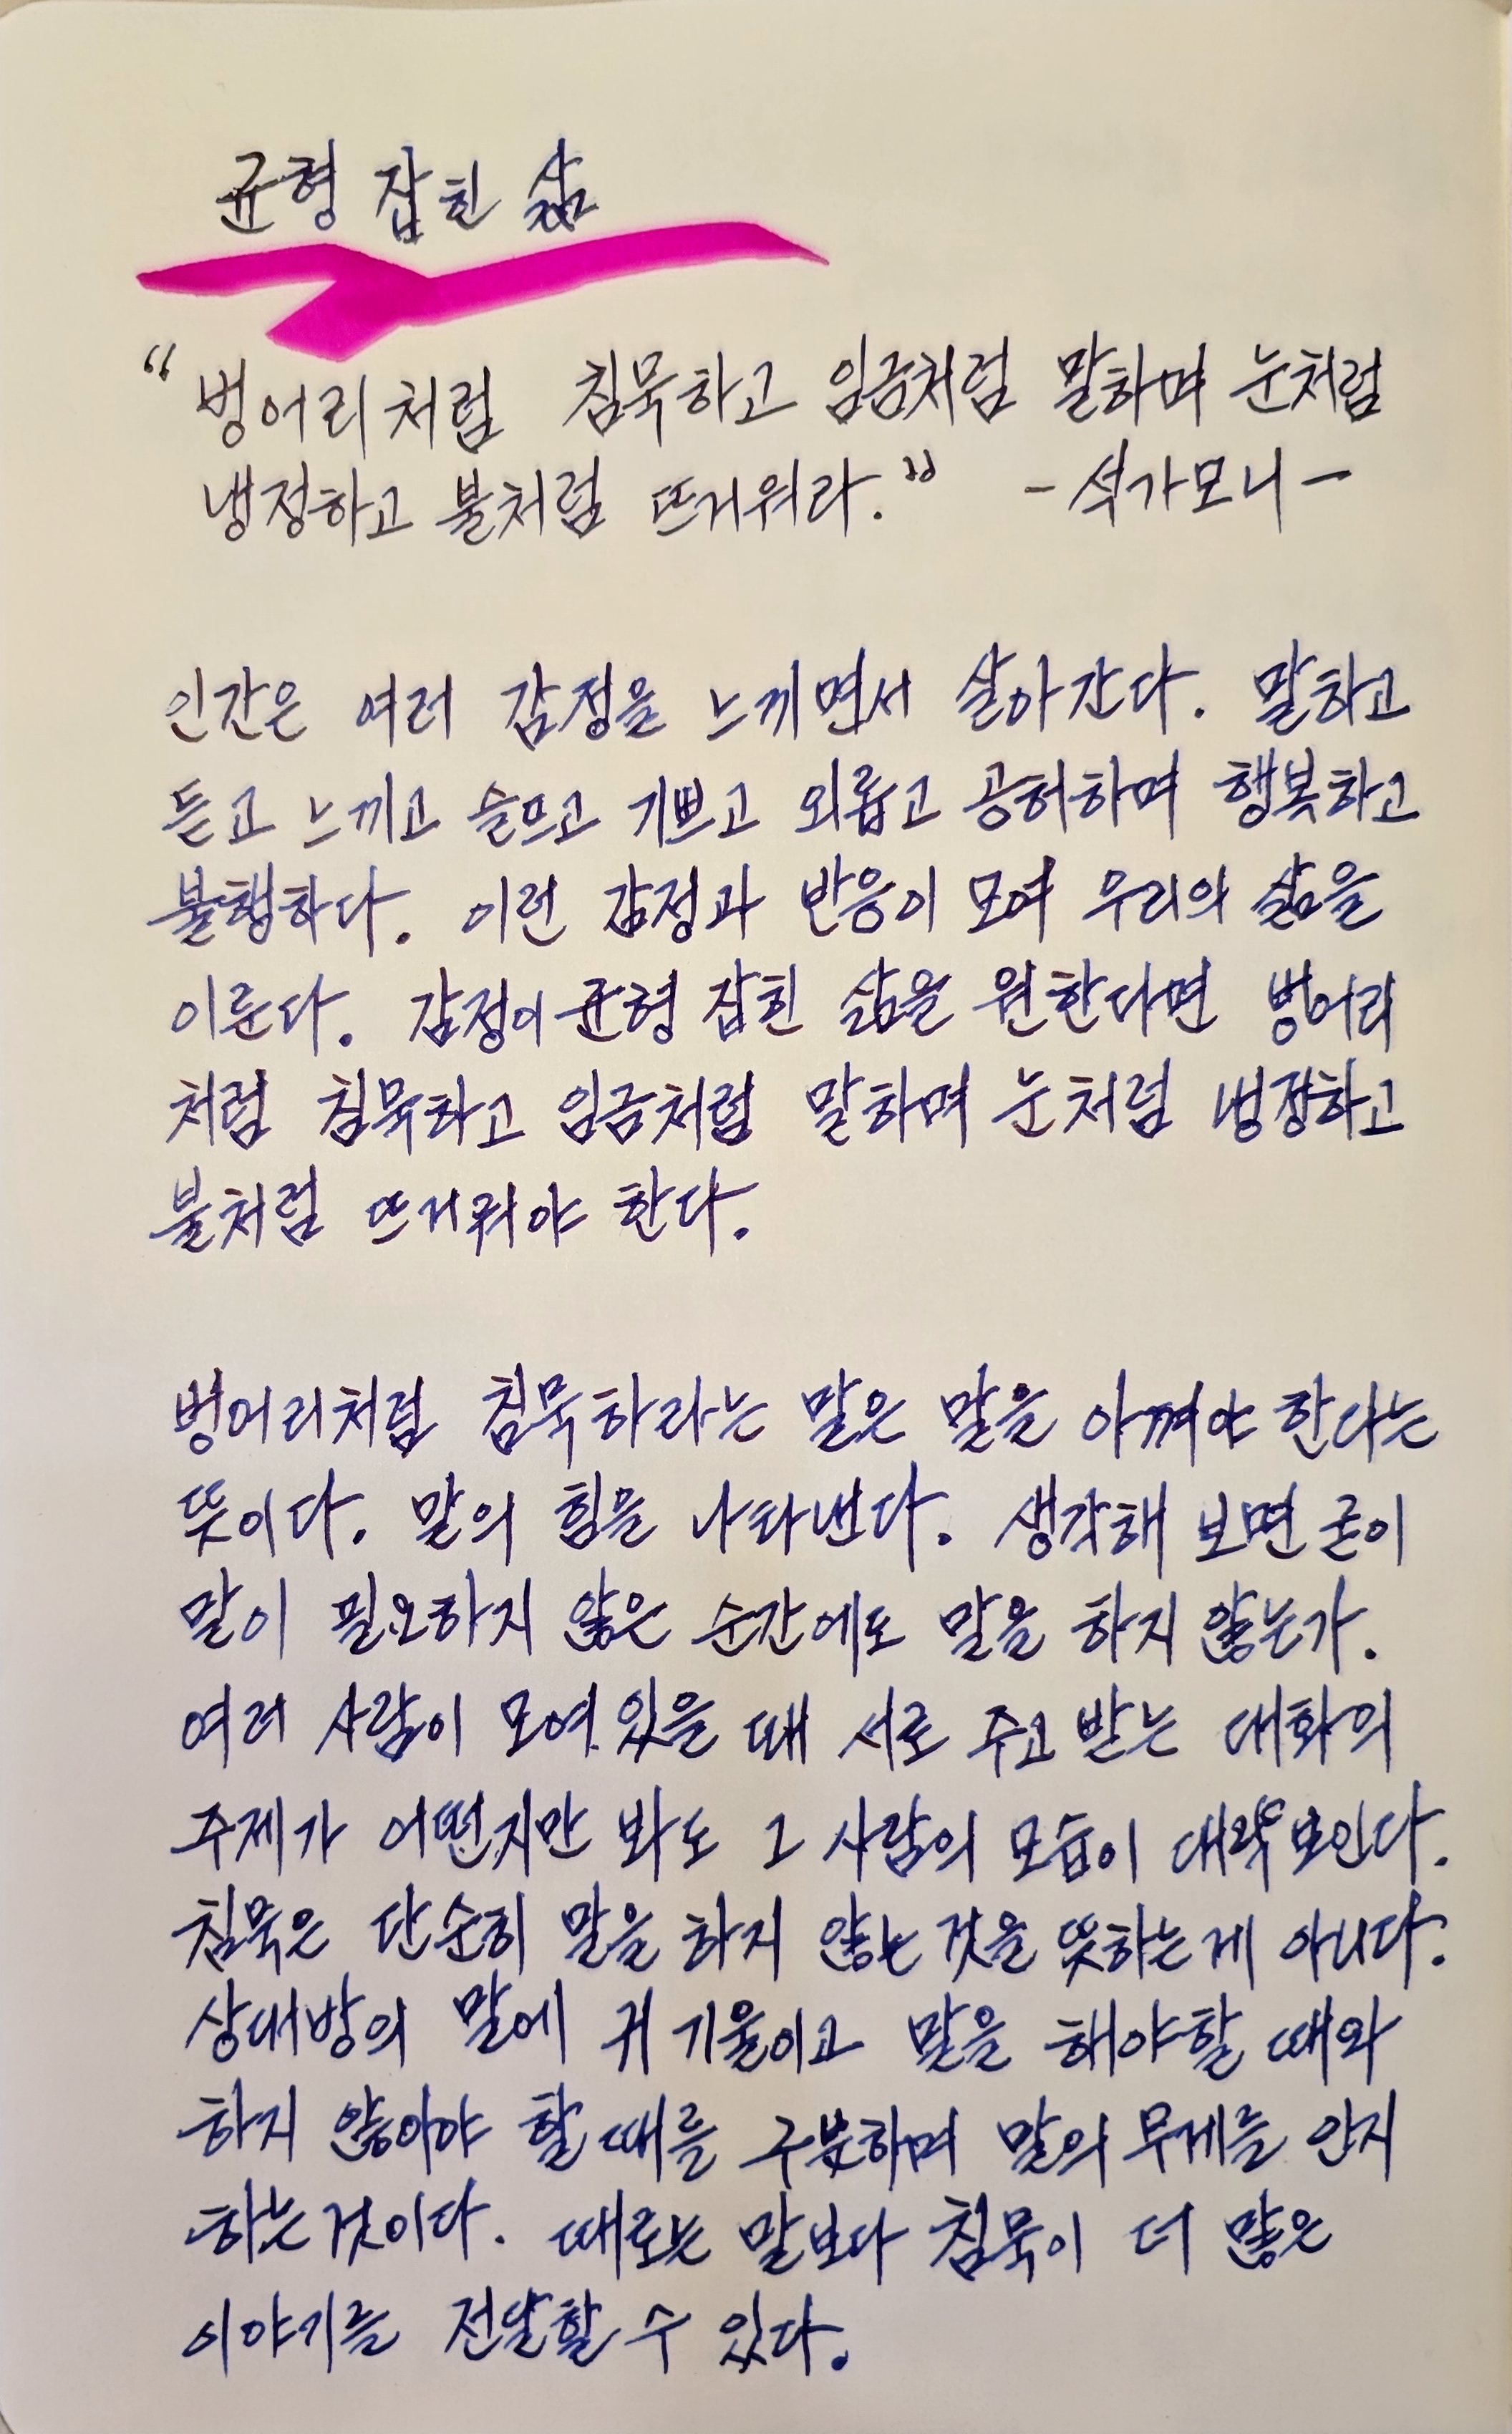 균형 잡힌 삶
“벙어리처럼 침묵하고 임금처럼 말하며 눈처럼
냉정하고 불처럼 뜨거워라.” - 석가모니 -
인간은 여러 감정을 느끼면서 살아간다. 말하고
듣고 느끼고 슬프고 기쁘고 외롭고 공허하며 행복하고
불행하다. 이런 감정과 반응이 모여 우리의 삶을
이룬다. 감정이 균형 잡힌 삶을 원한다면 벙어리
처럼 침묵하고 임금처럼 말하며 눈처럼 냉정하고
불처럼 뜨거워야 한다.
벙어리처럼 침묵하라는 말은 말을 아껴야 한다는
뜻이다. 말의 힘을 나타낸다. 생각해 보면 굳이
말이 필요하지 않은 순간에도 말을 하지 않는가.
여러 사람이 모여 있을 때 서로 주고 받는 대화의
주제가 어떤지만 봐도 그 사람의 모습이 대략 보인다.
침묵은 단순히 말을 하지 않는 것을 뜻하는 게 아니다.
상대방의 말에 귀 기울이고 말을 해야할 때와
하지 않아야 할 때를 구분하며 말의 무게를 인지
하는 것이다. 때로는 말보다 침묵이 더 많은
이야기를 전달할 수 있다.